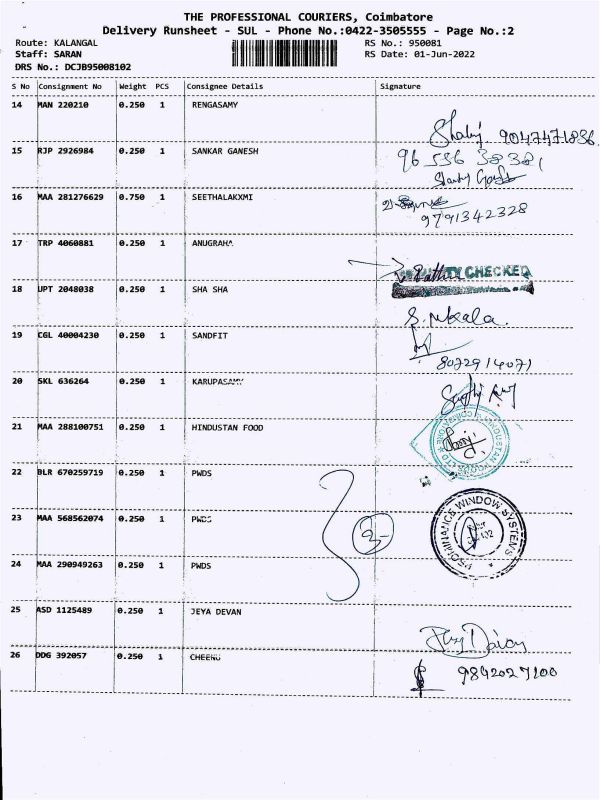 THE PROFESSIONAL COURIERS, Coimbatore
Delivery Runsheet - SUL - Phone No.:0422-3505555 - Page No.:2
Route: KALANGAL RS No.: 950081
Staff: SARAN RS Date: 01-Jun-2022
DRS No.: DCJB95008102
S No Consignment No Weight PCS Consignee Details Signature
14 MAN 220210 0.250 1 RENGASAMY
9047471836
15 RJP 2926984 0.250 1 SANKAR GANESH
96 556 38381
16 MAA 281276629 0.750 1 SEETHALAKXMI
9791342328
17 TRP 4060881 0.250 1 ANUGRAHA
CHECKED
18 UPT 2048038 0.250 1 SHA SHA
19 CGL 40004230 0.250 1 SANDFIT
8072914071
20 SKL 636264 0.250 1 KARUPASAMY
21 MAA 288100751 0.250 1 HINDUSTAN FOOD
22 BLR 670259719 0.250 1 PWDS
23 MAA 568562074 0.250 1 PWDS
WINDOW SYSTEMS
24 MAA 290949263 0.250 1 PWDS
25 ASD 1125489 0.250 1 JEYA DEVAN
26 DDG 392057 0.250 1 CHEENU
9842027100